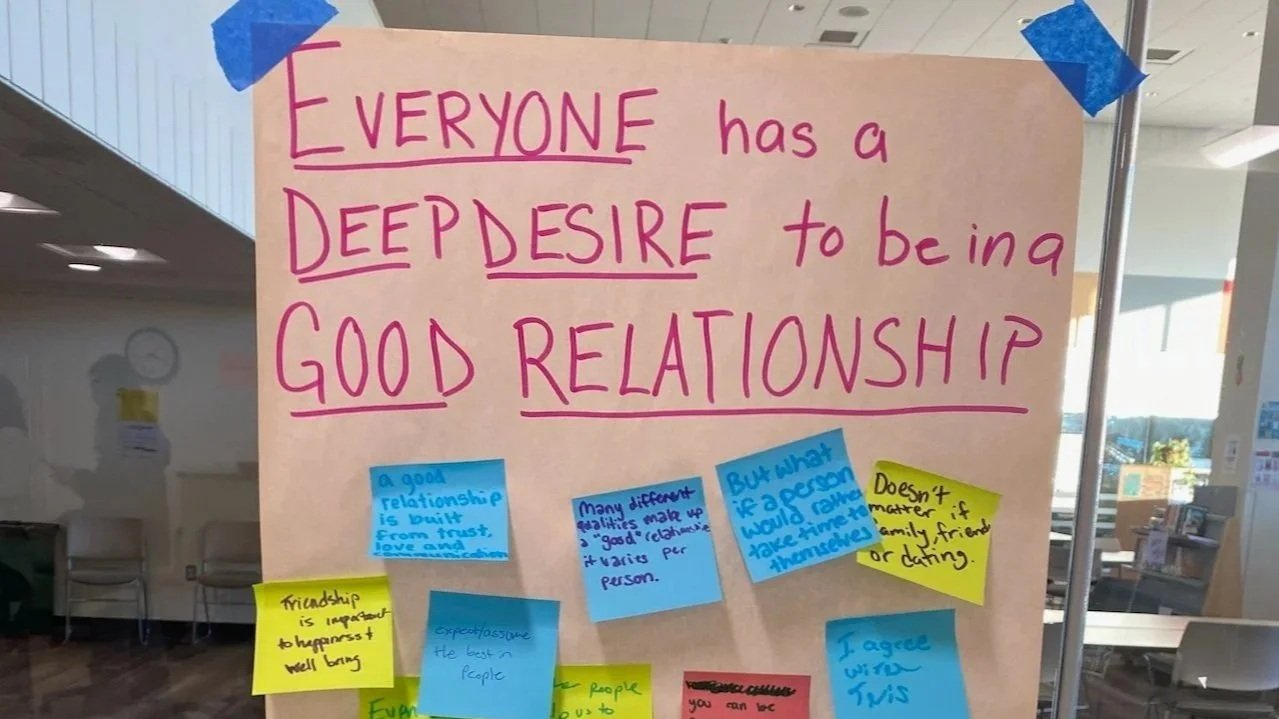 EVERYONE has a
DEEP DESIRE to be in a
GOOD RELATIONSHIP
a good
relationship
is built
from trust,
love and
communication
Many different
qualities make up
a "good" relationship
it varies per
person.
But what
if a person
would rather
take time to
themselves
Doesn't
matter if
family, friend
or dating.
Friendship
is important
to happiness +
well being
expect/assume
the best in
People
I agree
with
This
people
us to
you can be